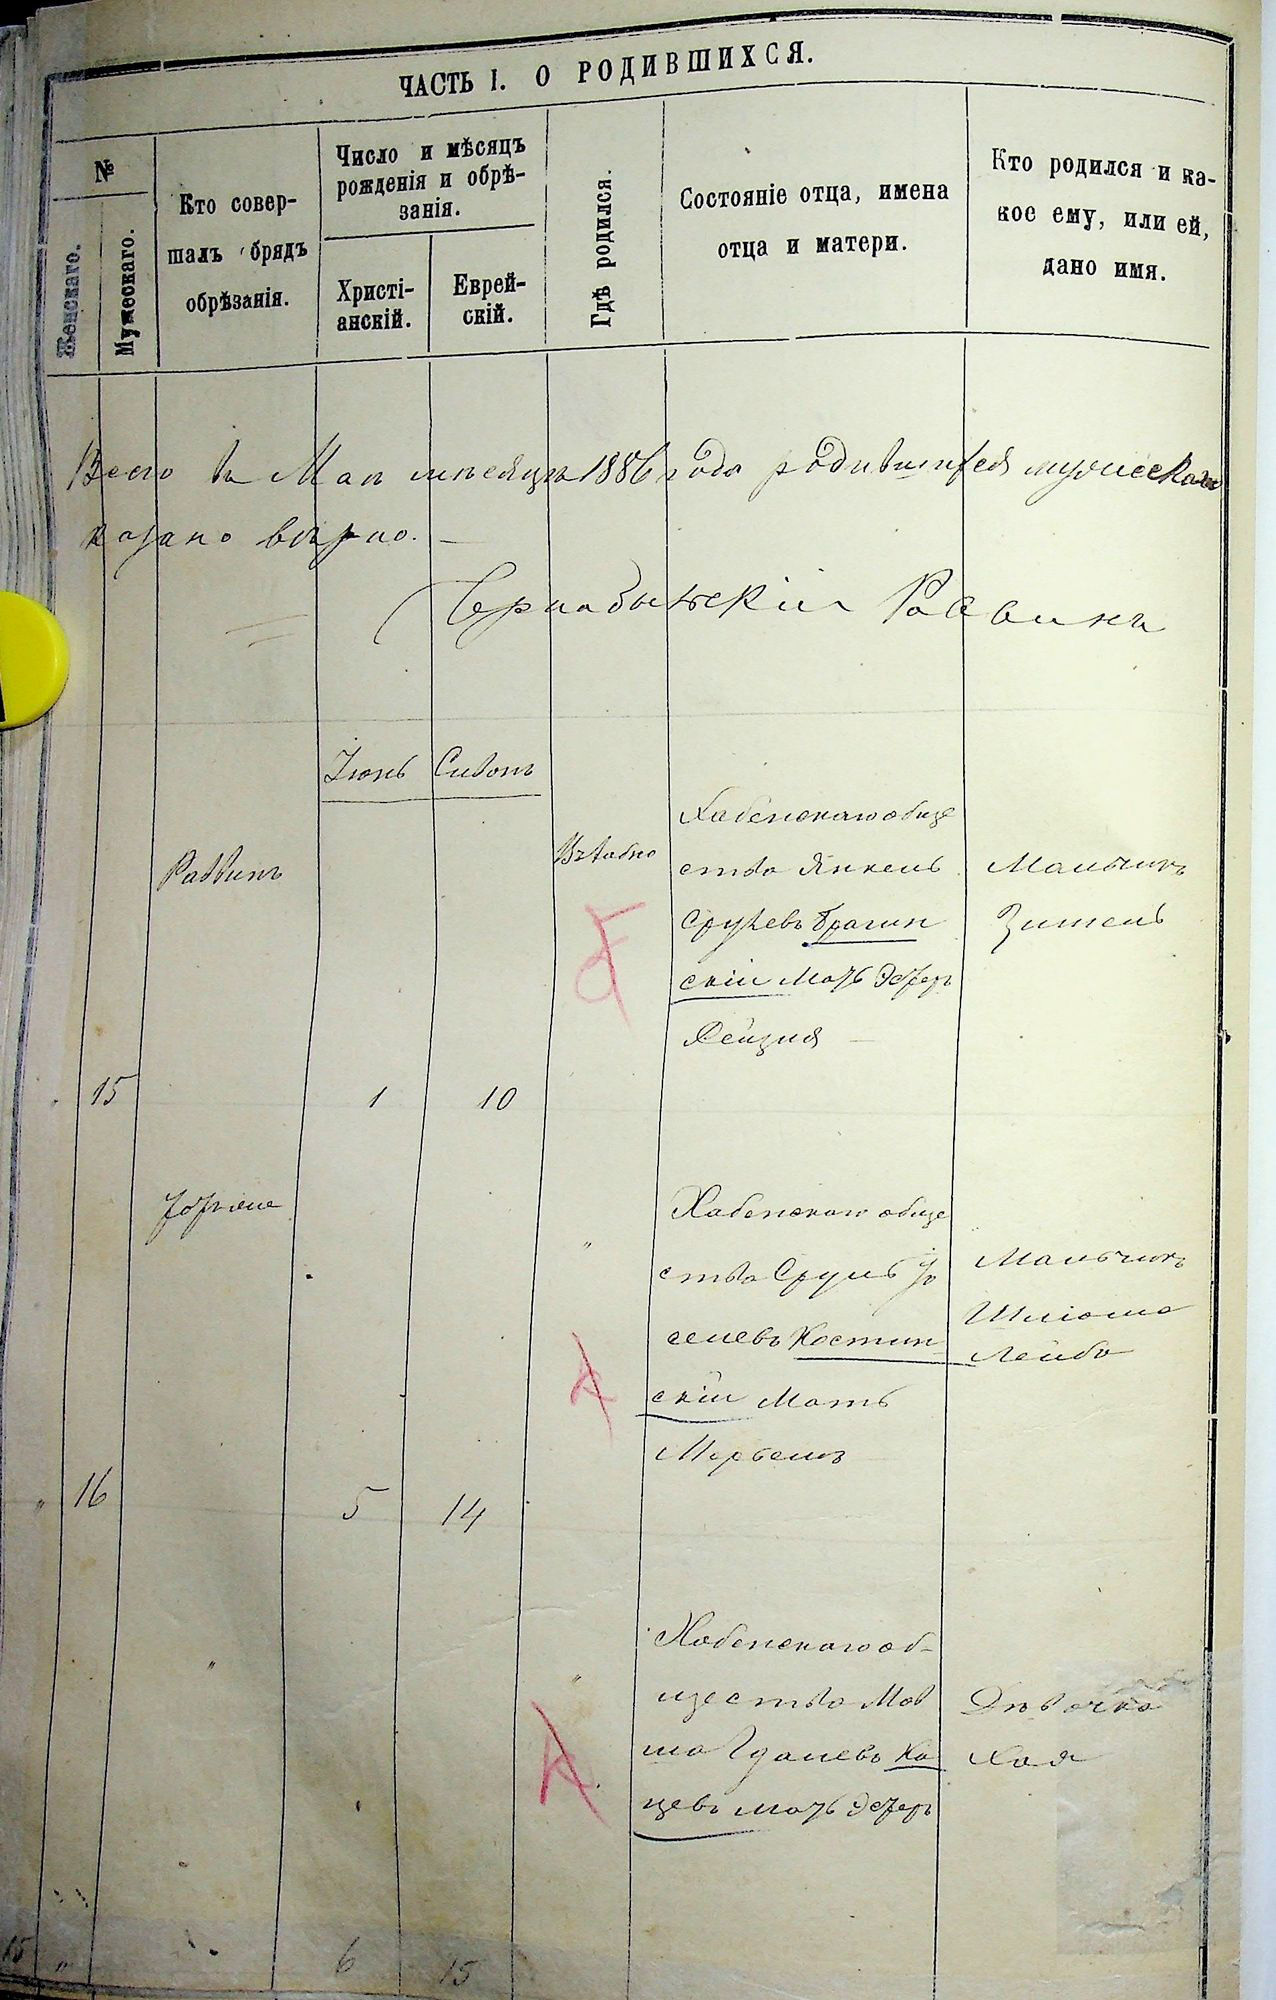 ЧАСТЬ I. О РОДИВШИХСЯ.
№
Женскаго.
Мужескаго.
Кто совер-
шалъ обрядъ
обрѣзанія.
Число и мѣсяцъ
рожденія и обрѣ-
занія.
Христі-
анскій.
Еврей-
скій.
Гдѣ родился.
Состояніе отца, имена
отца и матери.
Кто родился и ка-
кое ему, или ей,
дано имя.
Всего въ Маѣ мѣсяцѣ 1886 года родившихся мужескаго
казано вѣрно. —
Чернобыльскій Раввинъ
Іюнь Сивонъ
Раввинъ
Хабенскаго обще
ства Янкель
Срулевъ Брагин
скій Мать Эсферъ
Мальчикъ
Зимель
15 1 10
Хабенскаго обще
ства Сруль Іо
селевъ Костин-
скій Мать
Мерьемъ
Мальчикъ
Шліома
Лейба
" 16 5 14
Хабенскаго об-
щества Мов
ша Гдалевъ Ка
цевъ мать Эсферъ
Дѣвочка
Хая
15 " 6 15